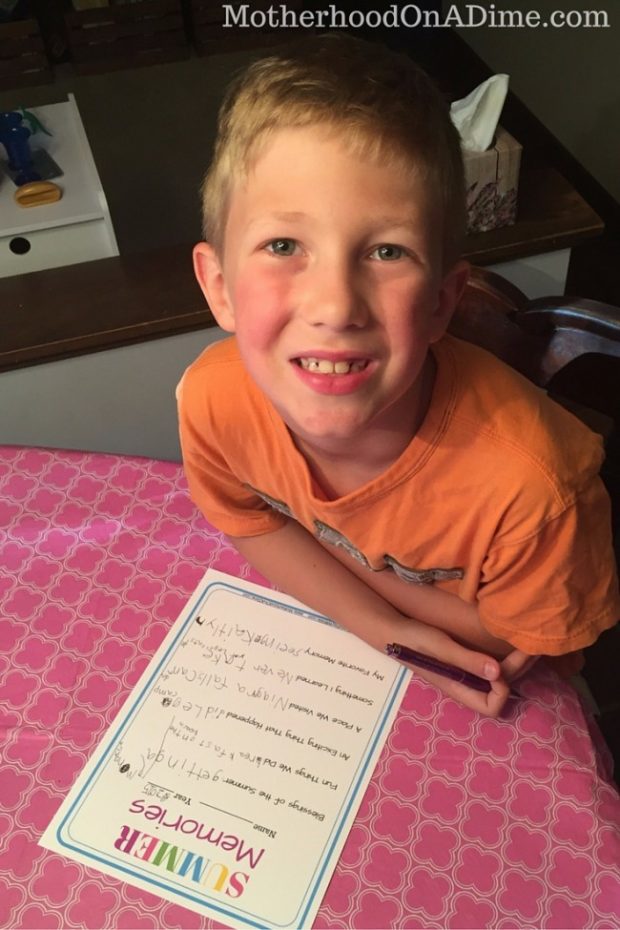 MotherhoodOnADime.com
SUMMER
Memories
Name Year 2015
Blessings of the Summer getting a
Fun Things We Did breakfast on the
An Exciting Thing That Happened did Lego
camp
A Place We Visited Niagra falls Can
Something I Learned Never take
My Favorite Memory Seeing Kaitlyn